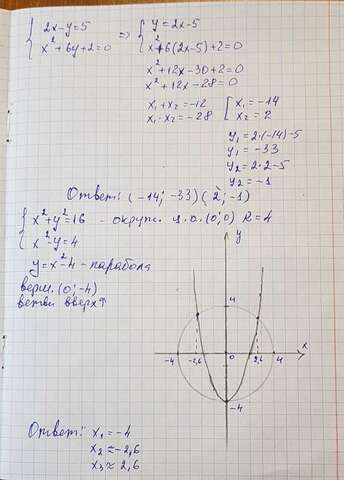 { 2x-y=5 => { y=2x-5
{ x²+6y+2=0 { x²+6(2x-5)+2=0
x²+12x-30+2=0
x²+12x-28=0
x₁+x₂=-12 [ x₁=-14
x₁·x₂=-28 [ x₂=2
y₁=2·(-14)-5
y₁=-33
y₂=2·2-5
y₂=-1
Ответ: (-14; -33) (2; -1)
{ x²+y²=16 - окружн. ц.о. (0; 0) R=4
{ x²-y=4
y=x²-4 - парабола
верш. (0; -4)
ветви вверх↑
y
4
-4 -2,6 0 2,6 4 x
-4
Ответ: x₁=-4
x₂≈-2,6
x₃≈2,6